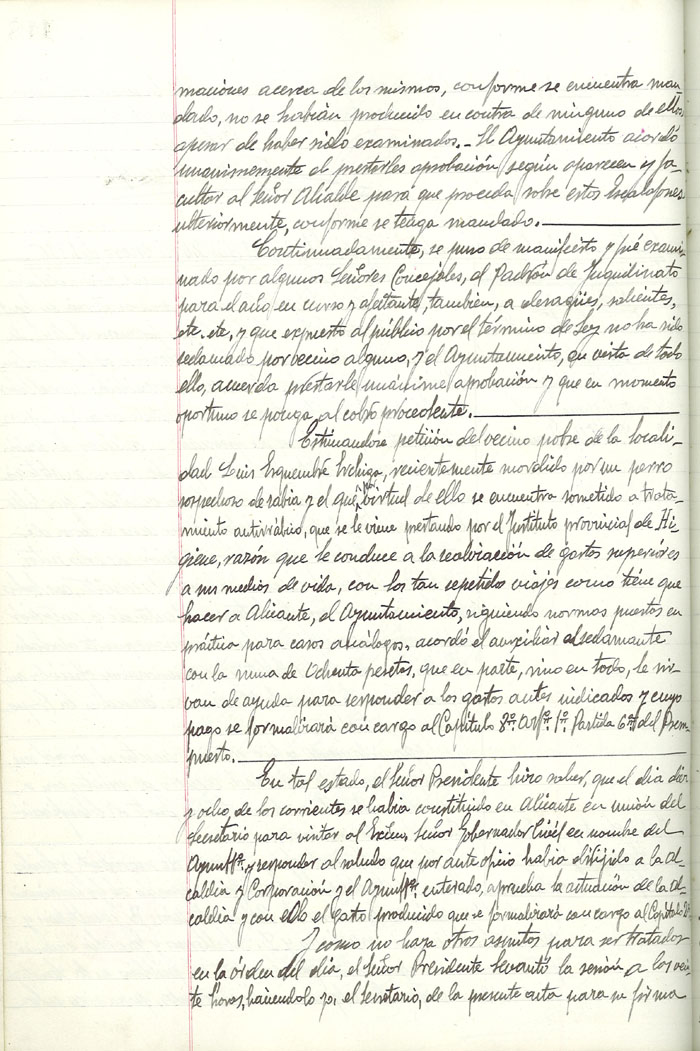 maciones acerca de los mismos, conforme se encuentra man-
dado, no se habían producido en contra de ninguno de ellos
apesar de haber sido examinados.- El Ayuntamiento acordó
unanimemente el prestarles aprobación según aparecen y fa-
cultar al Señor Alcalde para que proceda sobre estos Escalafones
ulteriormente, conforme se tenga mandado.
Continuadamente, se puso de manifiesto y fué exami-
nado por algunos Señores Concejales, el Padrón de Inquilinato
para el año en curso y afectante, también, a desagües, salientes,
etc. etc. y que expuesto al público por el término de Ley no ha sido
reclamado por vecino alguno, y el Ayuntamiento, en vista de todo
ello, acuerda prestarle unánime aprobación y que en momento
oportuno se ponga al cobro procedente.
Estimandose petición del vecino pobre de la locali-
dad Luis Esquembre, recientemente mordido por un perro
sospechoso de rabia y el que por virtud de ello se encuentra sometido a trata-
miento antirrábico, que se le viene prestando por el Instituto provincial de Hi-
giene, razón que le conduce a la realización de gastos superiores
a sus medios de vida, con los tan repetidos viajes como tiene que
hacer a Alicante, el Ayuntamiento, siguiendo normas puestas en
práctica para casos análogos, acordó el auxiliar al reclamante
con la suma de Ochenta pesetas, que en parte, sino en todo, le sir-
van de ayuda para responder a los gastos antes indicados y cuyo
pago se formalizará con cargo al Capítulo 8º. Artº. 1º. Partida 6ª del Presu-
puesto.
En tal estado, el Señor Presidente hizo saber, que el día diez
y ocho, de los corrientes se había constituido en Alicante en unión del
Secretario para visitar al Excmo. Señor Gobernador Civil en nombre del
Ayuntº. y responder al saludo que por ante oficio había dirigido a la Al-
caldía y Corporación y el Ayuntº. enterado, aprueba la actuación de la Al-
caldía y con ello el gasto producido que se formalizará con cargo al Capítulo
Y como no haya otros asuntos para ser tratados
en la órden del día, el Señor Presidente levantó la sesión a las vein-
te horas, haciéndolo yo, el Secretario, de la presente acta para su firma